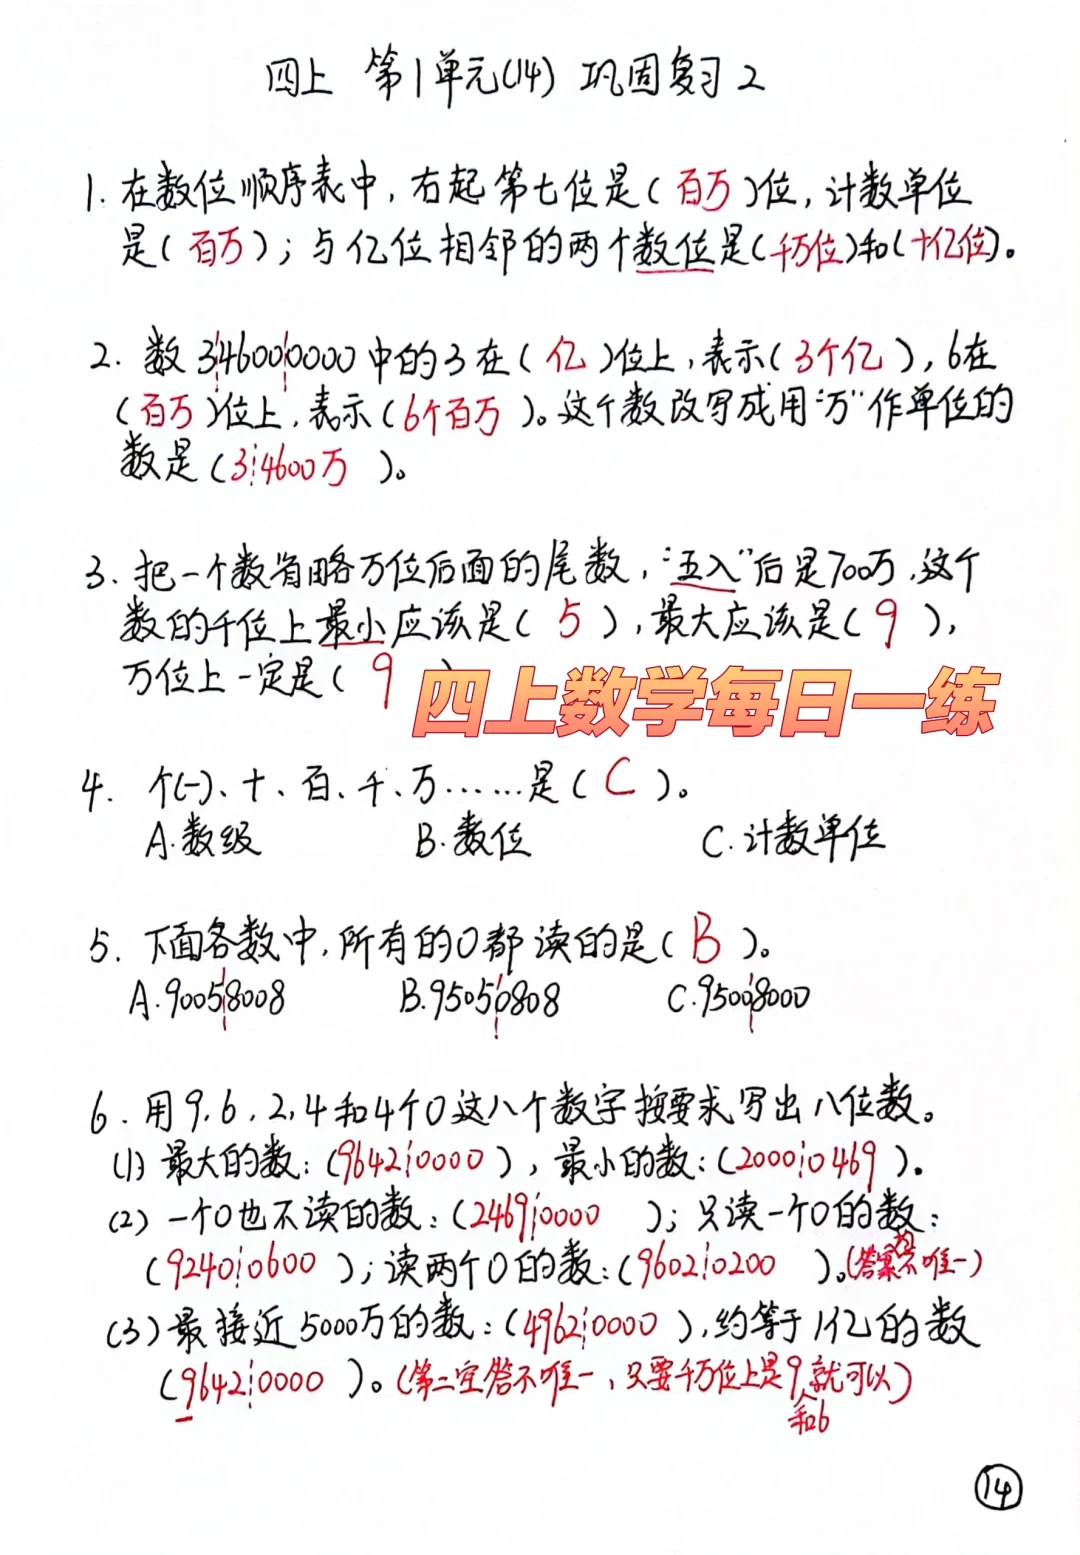 四上 第1单元(14) 巩固复习2
1. 在数位顺序表中,右起第七位是(百万)位,计数单位
是(百万);与亿位相邻的两个数位是(千万位)和(十亿位)。
2. 数346000000中的3在(亿)位上,表示(3个亿),6在
(百万)位上,表示(6个百万)。这个数改写成用“万”作单位的
数是(34600万)。
3. 把一个数省略万位后面的尾数,“五入”后是700万,这个
数的千位上最小应该是(5),最大应该是(9),
万位上一定是(9
四上数学每日一练
4. 个(一)、十、百、千、万……是(C)。
A.数级 B.数位 C.计数单位
5. 下面各数中,所有的0都读的是(B)。
A.90058008 B.95050808 C.95008000
6. 用9,6,2,4和4个0这八个数字按要求写出八位数。
(1) 最大的数:(96420000),最小的数:(20000469)。
(2) 一个0也不读的数:(24690000);只读一个0的数:
(92400600);读两个0的数:(96020200)。(答案均不唯一)
(3) 最接近5000万的数:(49620000),约等于1亿的数
(96420000)。(第二空答不唯一,只要千万位上是9和6就可以)
14